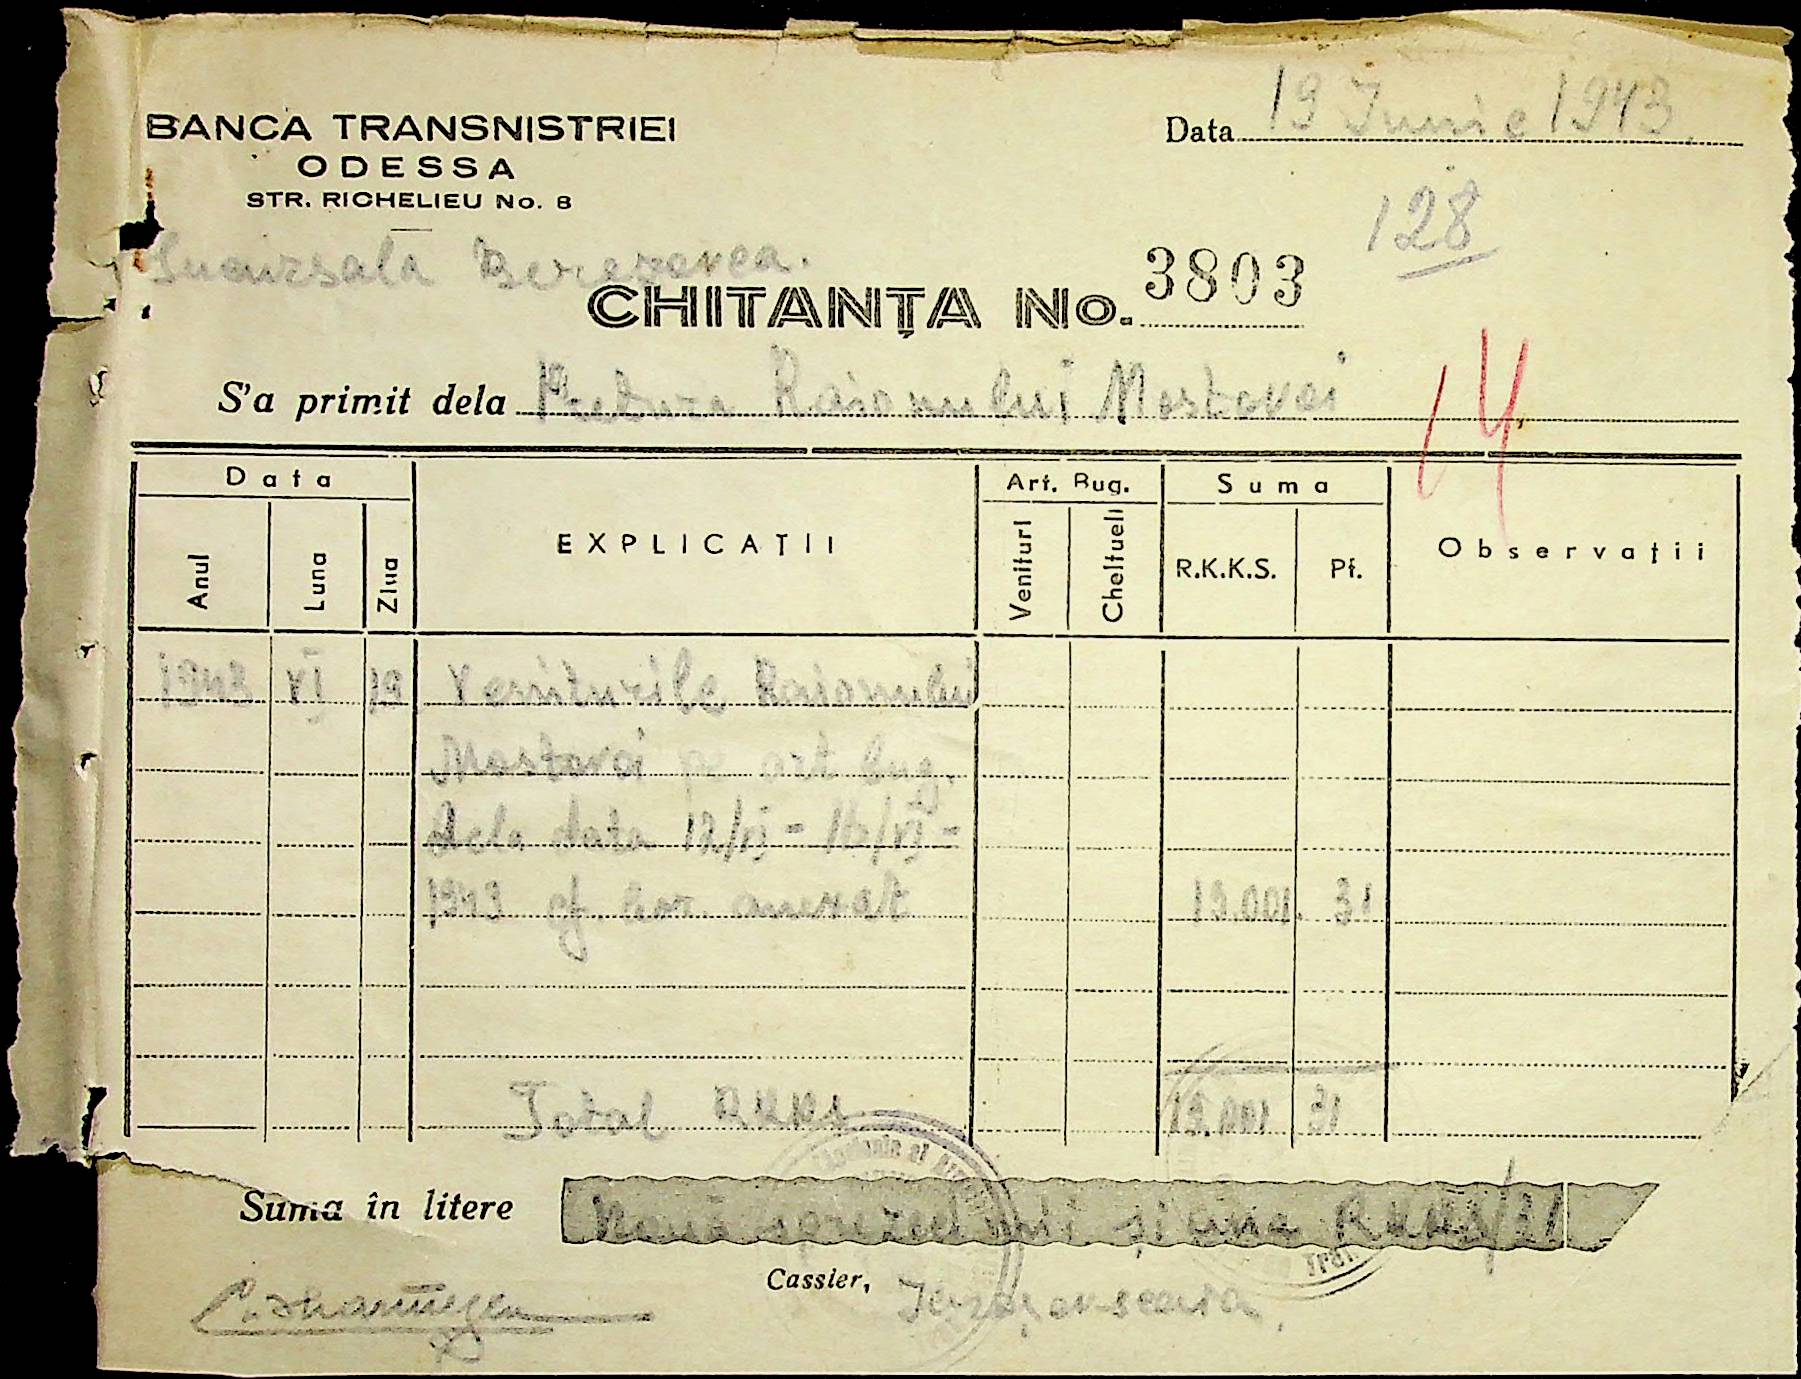 BANCA TRANSNISTRIEI
ODESSA
STR. RICHELIEU No. 8
Data 19 Iunie 1943.
128
Sucursala Berezovca.
CHITANȚA No. 3803
S'a primit dela Pretura Raionului Mostovoi
14
Data
Anul Luna Ziua
EXPLICAȚII
Art. Bug.
Venituri Cheltueli
Suma
R.K.K.S. Pf.
Observații
1943 VI 19 Veniturile Raionului
Mostovoi pe art bug.
dela data 12/VI - 16/VI -
1943 cf. bor. anexat 19.001. 31
Total RKKS 19.001 31
Suma în litere Nouăsprezece mii și una RKKS/31
Cassier,